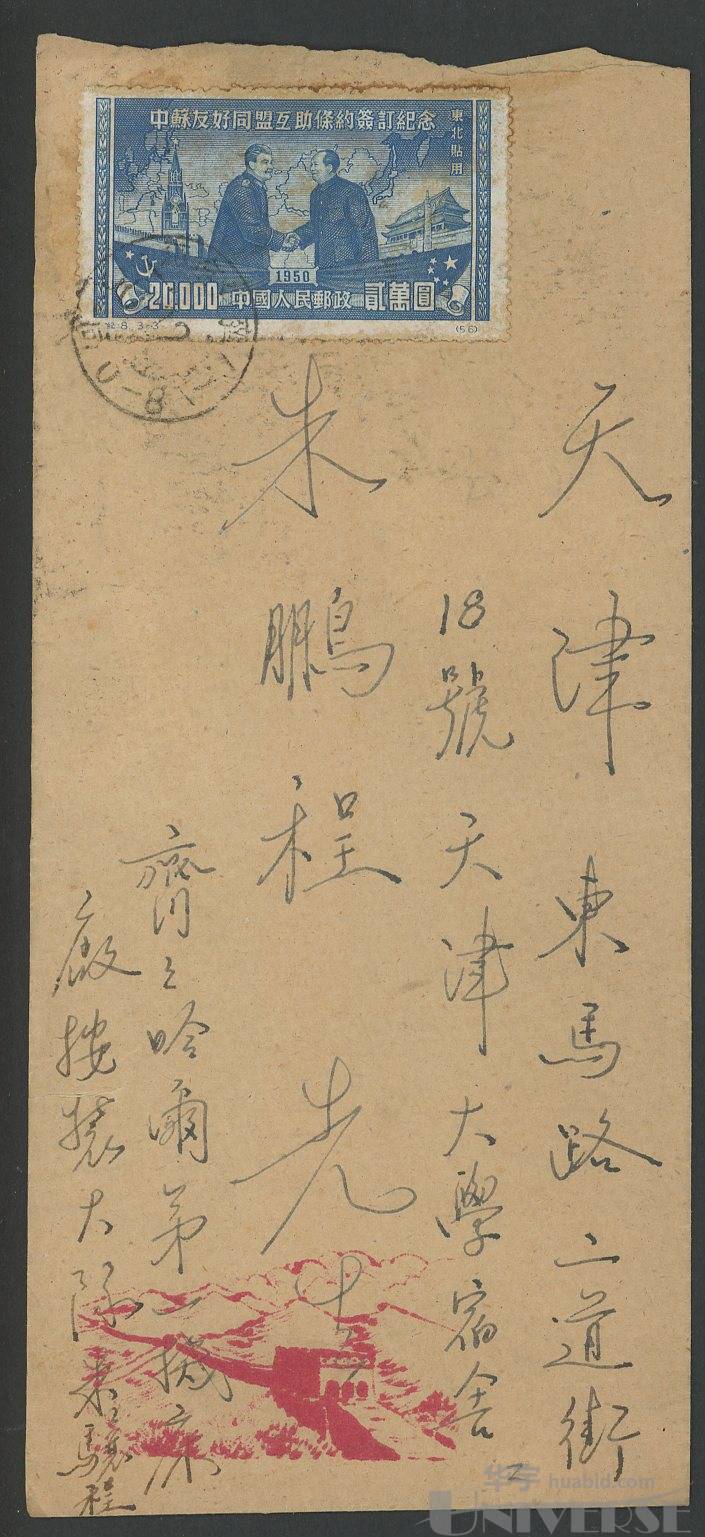 中蘇友好同盟互助條約簽訂紀念
東北貼用
1950
20.000 中國人民郵政 貳萬圓
紀8. 3-3
(56)
天津東馬路二道街
18號天津大學宿舍
朱鵬程先生
齊齊哈爾第一機床
廠按裝大隊朱驥程
华宇 huabid.com
UNIVERSE